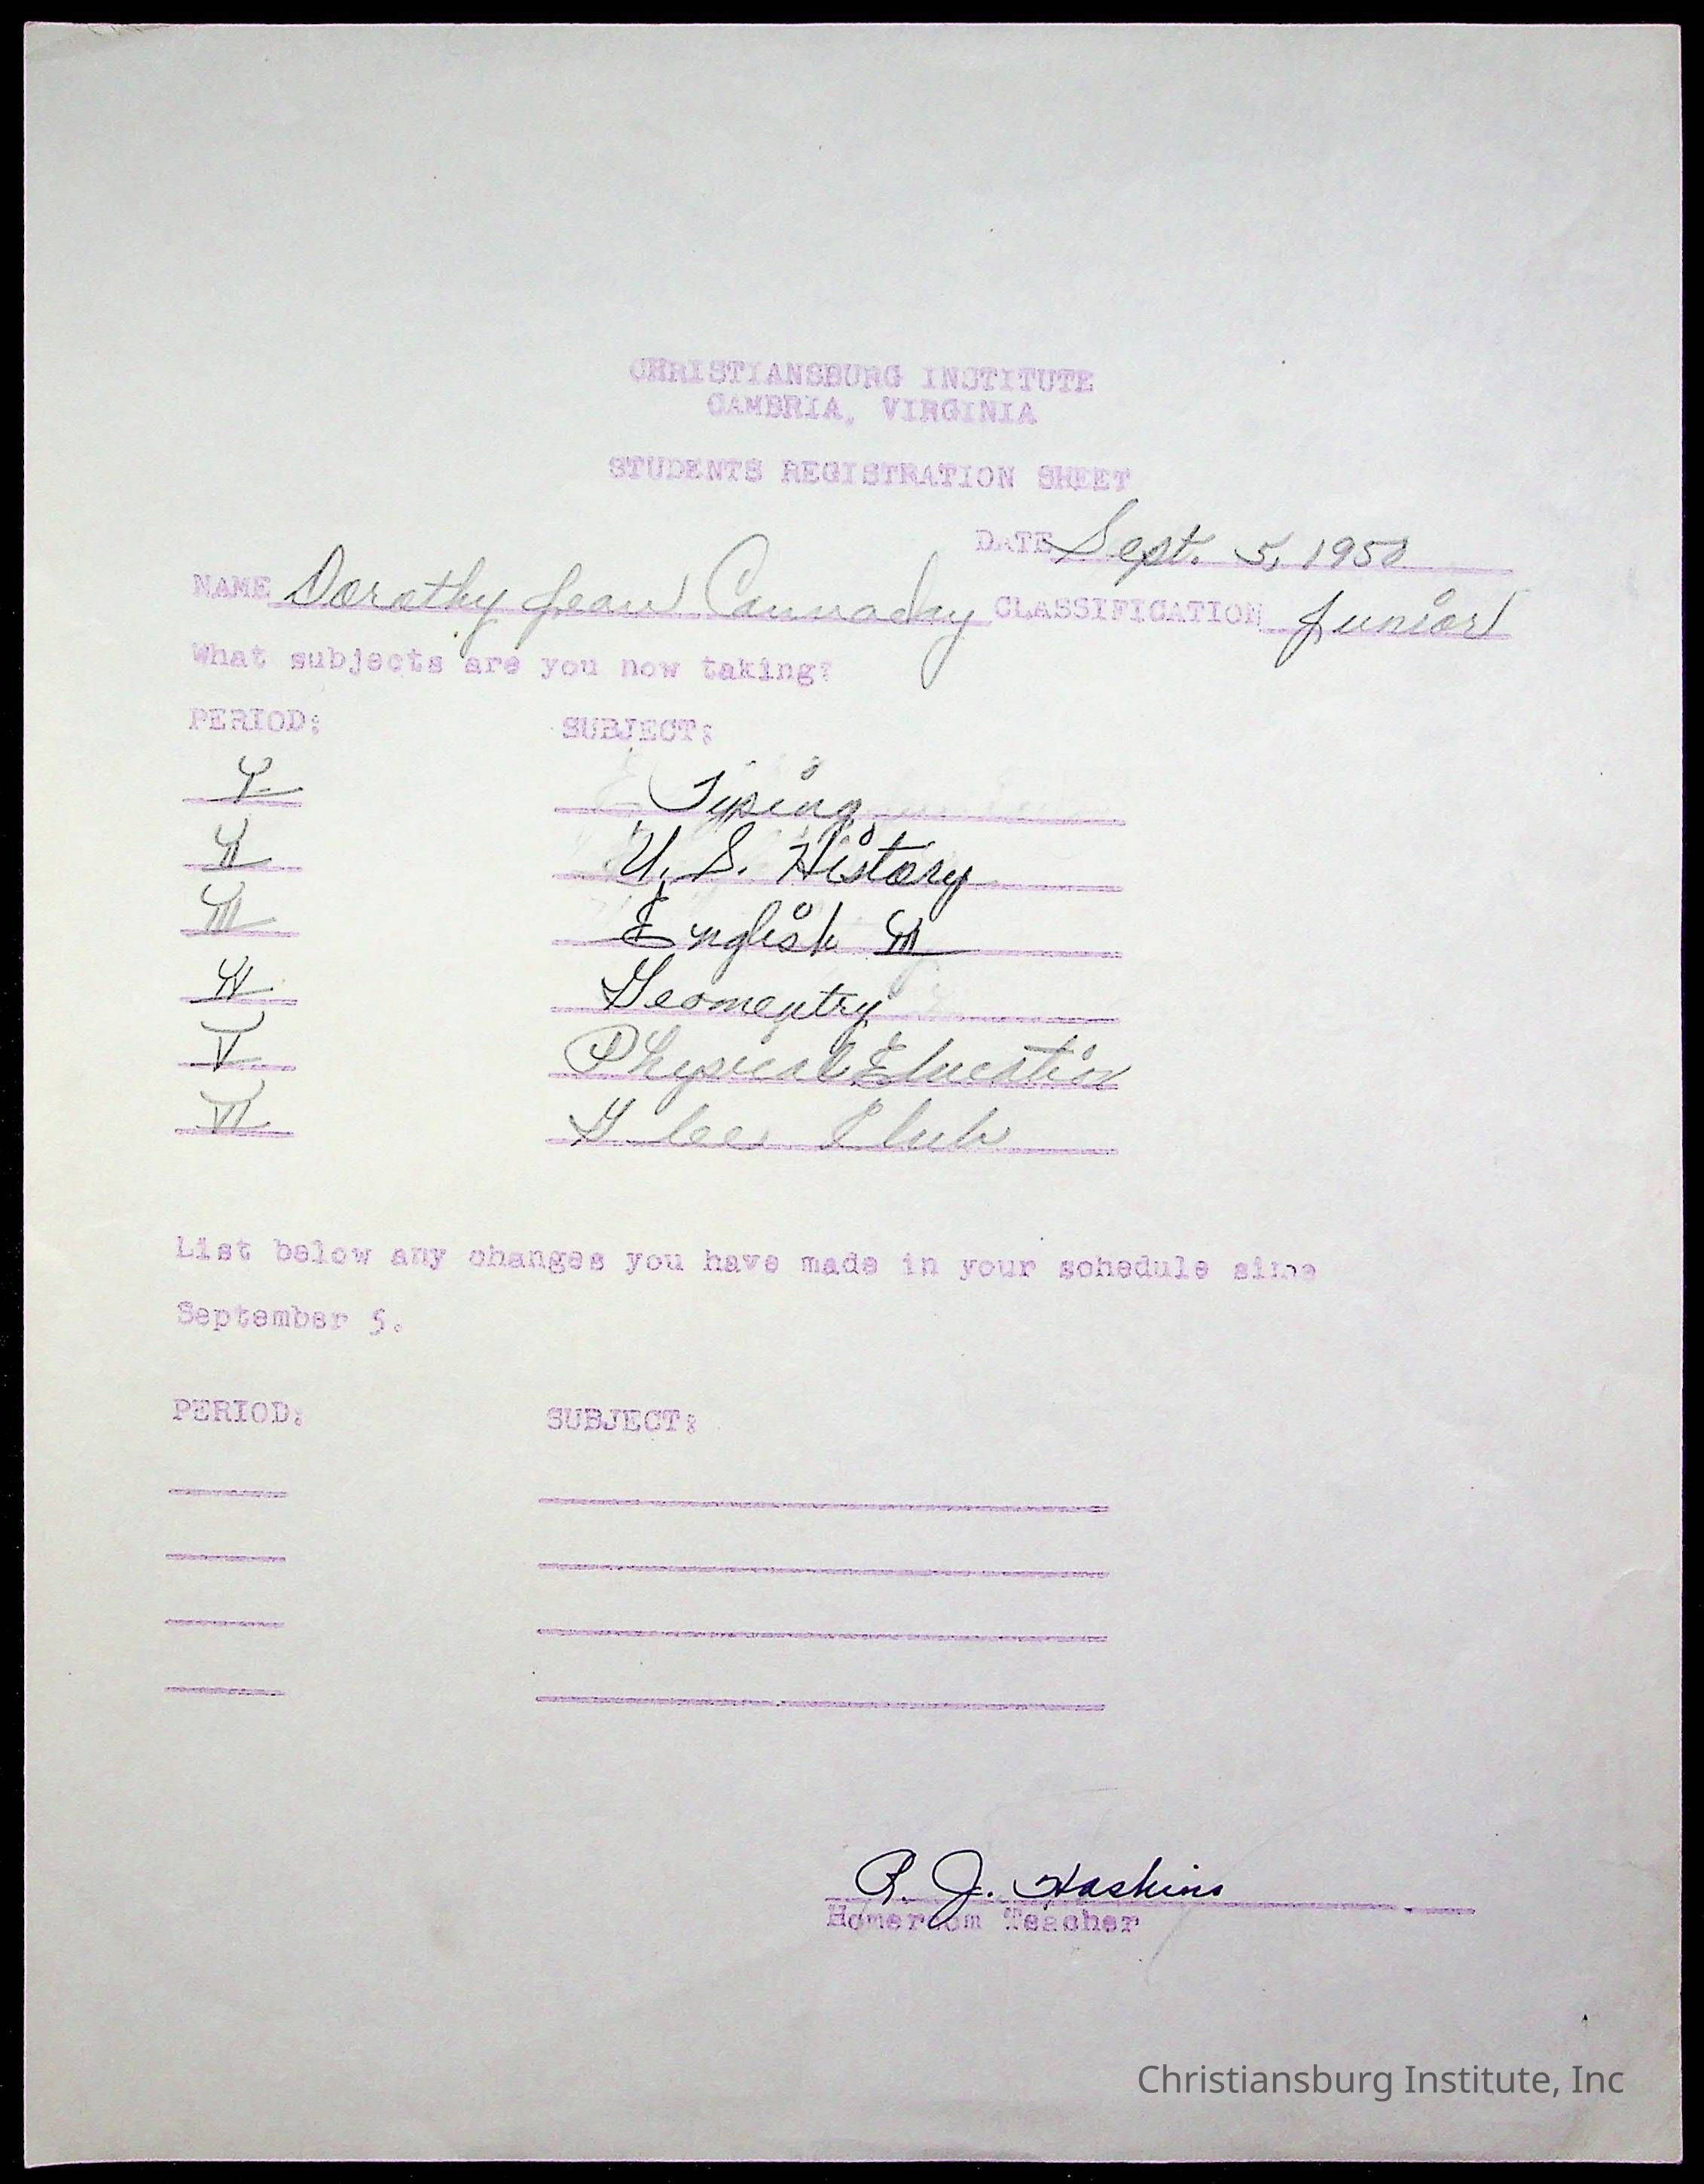 CHRISTIANSBURG INSTITUTE
CAMBRIA, VIRGINIA
STUDENTS REGISTRATION SHEET
DATE Sept. 5, 1950
NAME Dorothy Jean Cannaday CLASSIFICATION Junior
What subjects are you now taking?
PERIOD: SUBJECT:
I Typing
II U. S. History
III English III
IV Geomeytry
V Physical Education
VI Glee Club
List below any changes you have made in your schedule since
September 5.
PERIOD: SUBJECT:
R. J. Haskins
Homeroom Teacher
Christiansburg Institute, Inc